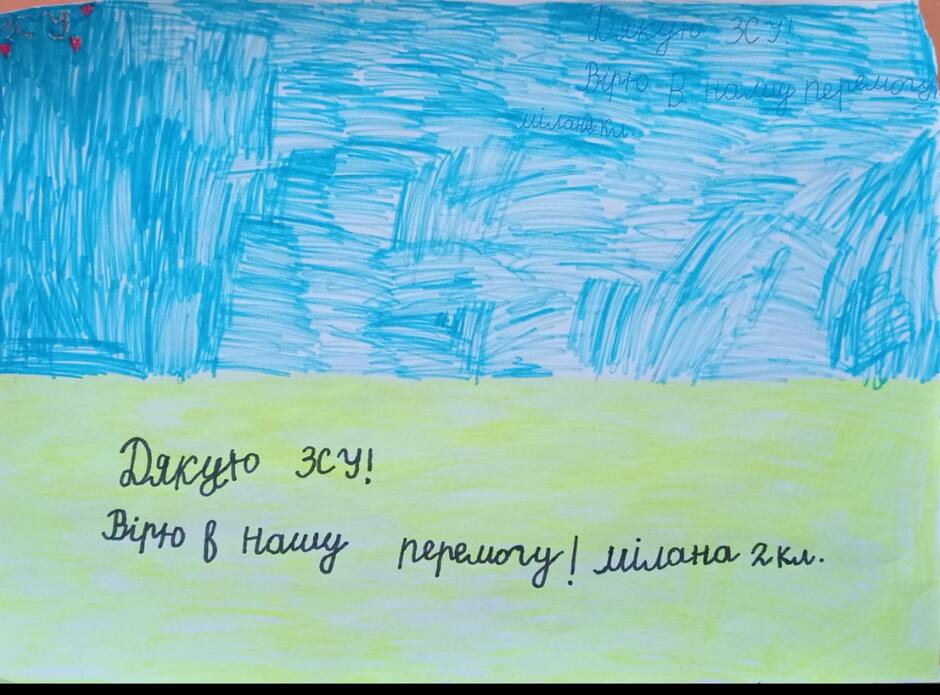 ЗСУ
Дякую ЗСУ!
Вірю в нашу перемогу
мілана кл.
Дякую ЗСУ!
Вірю в нашу перемогу! мілана 2 кл.